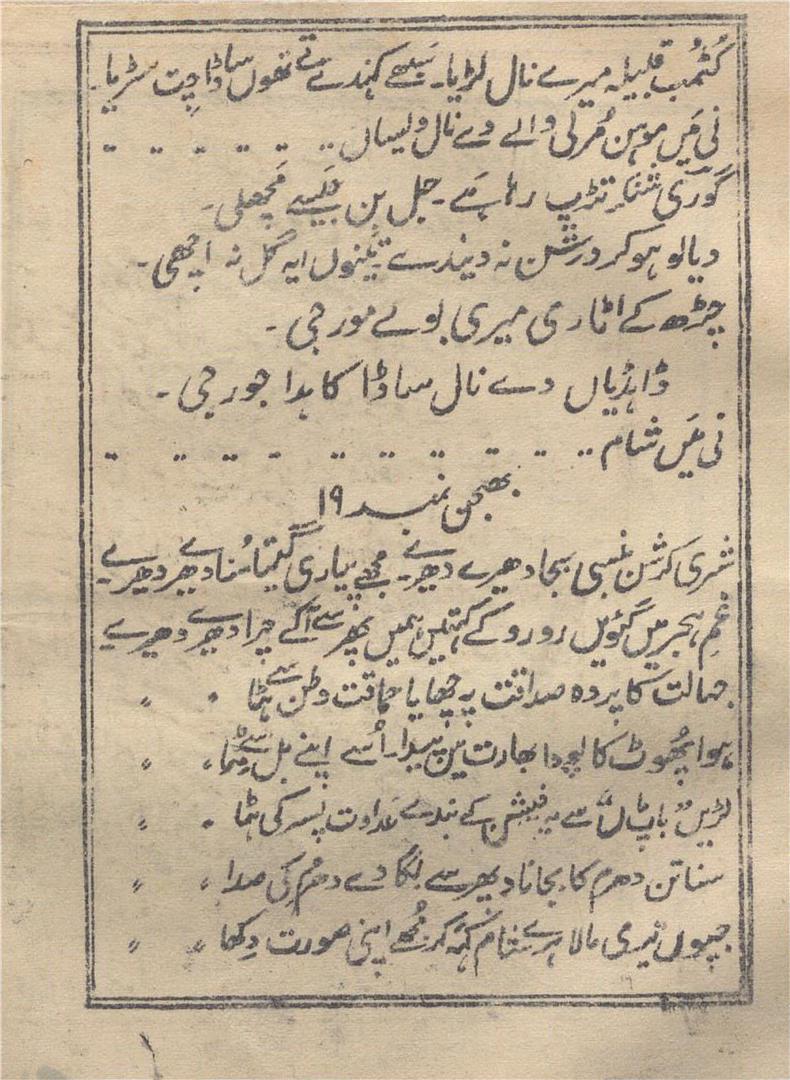 کُٹمب قبیلہ میرے نال لڑیا۔ سَبھے کہندے تے تھوں ساڈا چِت سڑیا۔
نی مَیں موہن مُرلی والے دے نال ولیساں ..
گوری شنکر تڑپ رہا ہَے۔ جل بِن جَیسے مَچھلی۔
دیالو ہو کر درشن نہ دیندے تَینوں ایہ گل نہ اچھی۔
چڑھ کے اٹاری میری بولے مور جی۔
ڈاہڈیاں دے نال ساڈا کاہدا جور جی۔
نی مَیں شام ..
بھجن نمبر ۱۹
شری کرشن بنسی بجا دھیرے دھیرے۔ مجھے پیاری گیتا سُنا دھیرے دھیرے۔
غمِ ہجر میں گئویں رو رو کے کہتیں ہمیں پھر سے آکے چرا دھیرے دھیرے
جہالت کا پردہ صداقت پہ چھایا حماقت وطن سے ہٹا 〃 〃
ہوا پُھوٹ کا پودا بھارت میں پیدا۔ اُسے اپنے بل سے مِٹا 〃 〃
لڑیں باپ ماں سے یہ فیشن کے بندے عداوت پسر کی ہٹا 〃 〃
سناتن دھرم کا بجانا دیھر سے لگا دے دھرم کی صدا 〃 〃
جپوں تیری مالا ہرے شام کہہ کر مُجھے اپنی صورت دِکھا 〃 〃